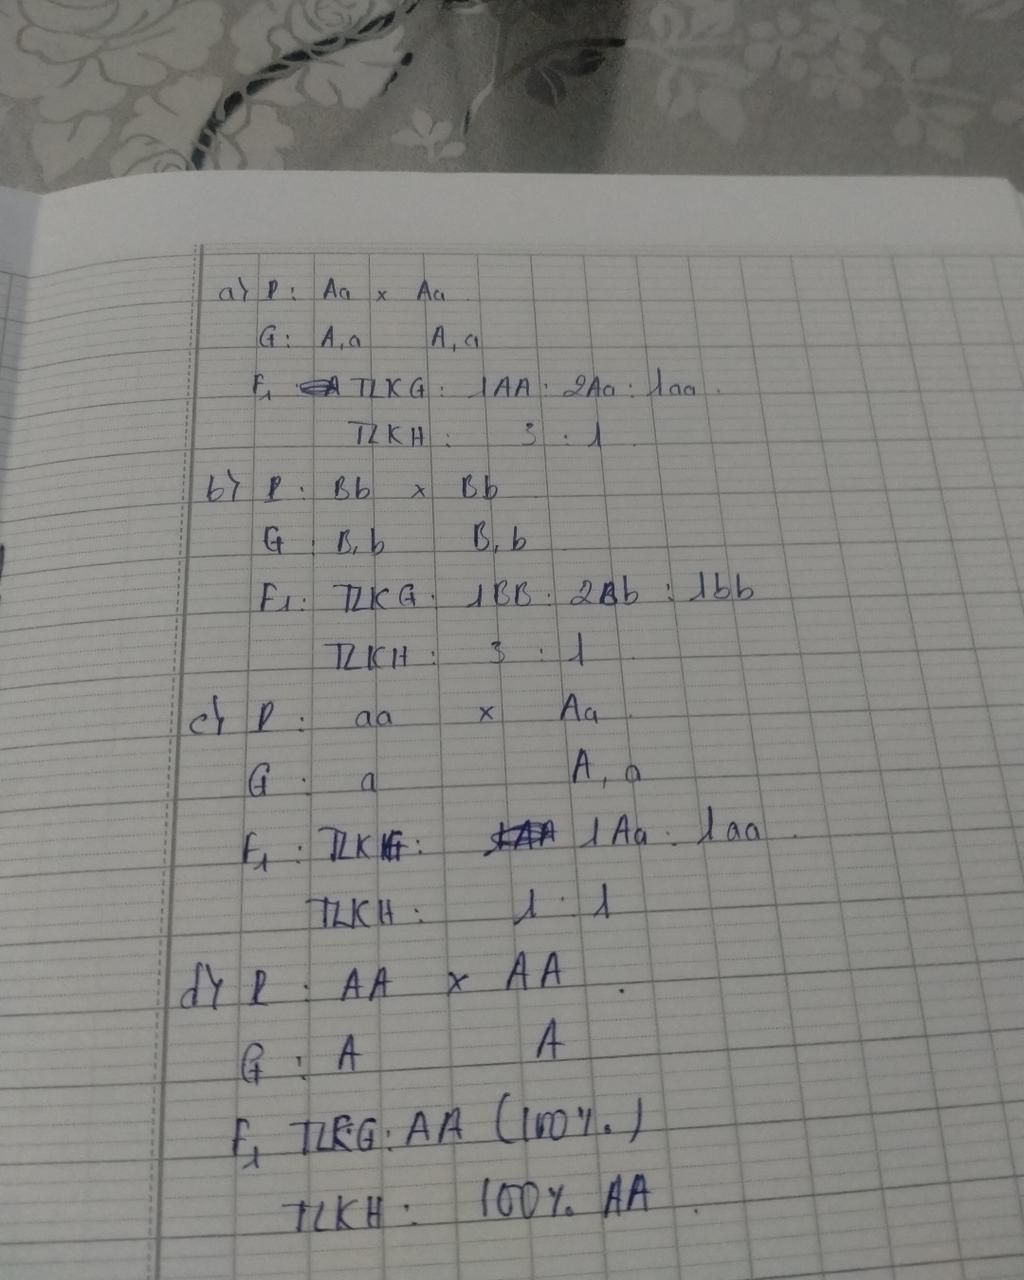 a) P: Aa x Aa
G: A, a A, a
F1 TLKG: 1AA : 2Aa : 1aa.
TLKH: 3 : 1
b) P: Bb x Bb
G: B, b B, b
F1: TLKG: 1BB: 2Bb : 1bb
TLKH: 3 : 1
c) P: aa x Aa
G: a A, a
F1: TLKG: 1Aa : 1aa.
TLKH: 1 : 1
d) P: AA x AA
G: A A
F1 TLKG: AA (100%)
TLKH: 100% AA.